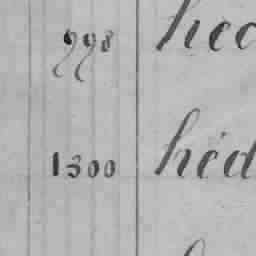 998 hec
1300 héd